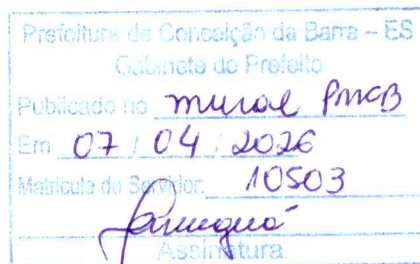 Prefeitura de Conceição da Barra - ES
Gabinete do Prefeito
Publicado no mural PMCB
Em 07 / 04 / 2026
Matrícula do Servidor: 10503
Assinatura